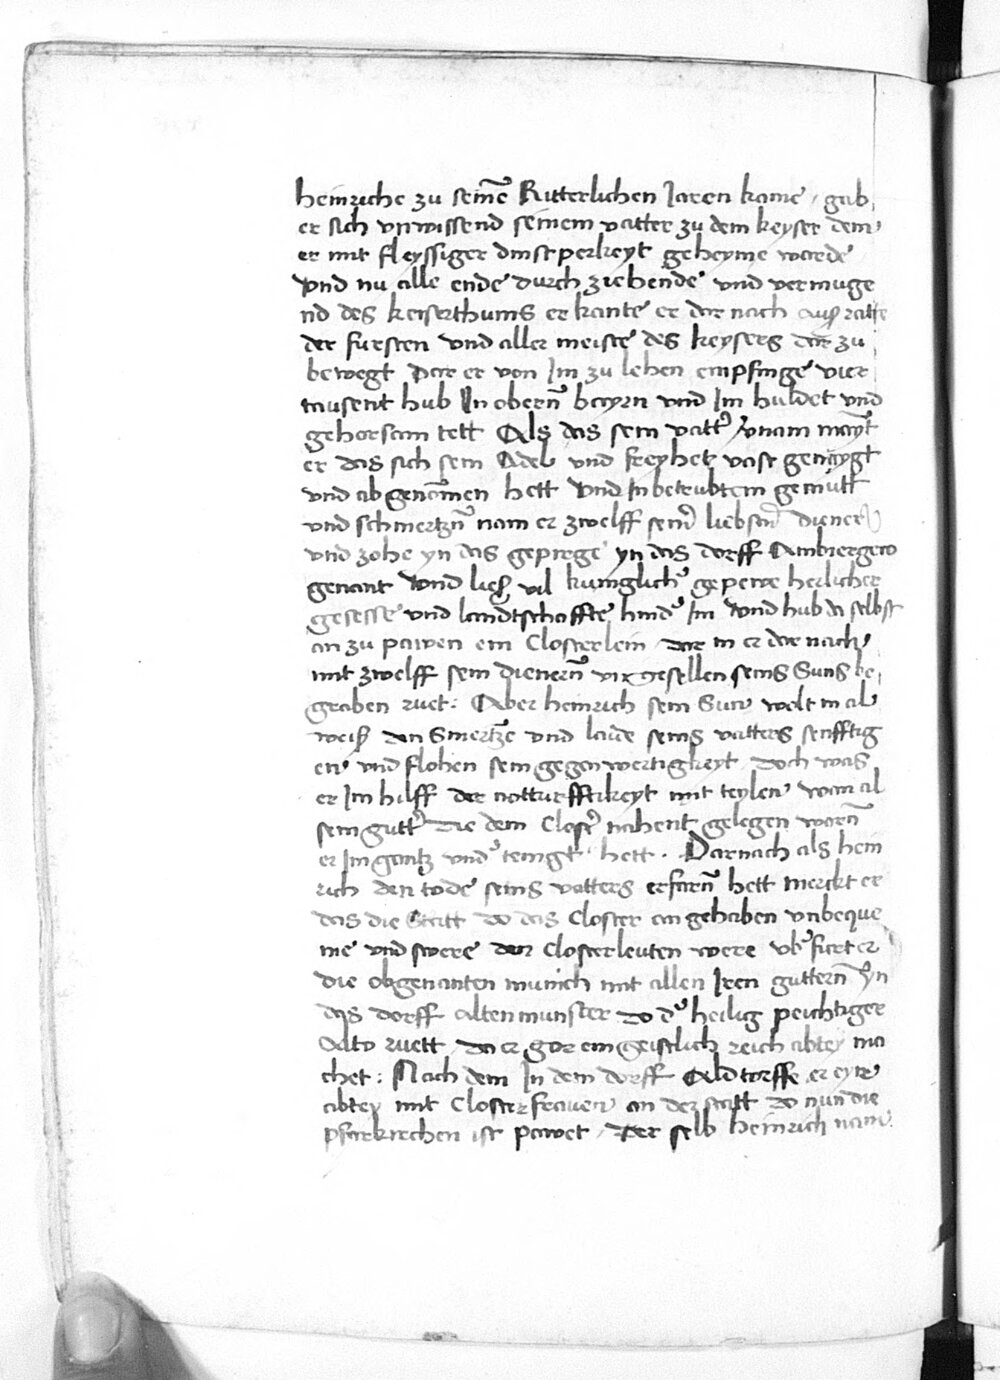 heinriche zu seinē Ritterlichen Jaren kame / gab
er sich vnwissend seinem vatter zu dem keyser dem
er mit fleyssiger dinstperkeyt geheyme warde
vnd nu alle ende durch ziehende vnd vermuge
nd des keiserthums erkante er dar nach auß ratte
der fursten vnd aller meiste des keysers dar zu
bewegt Dar er von Im zu lehen empfinge vier
tausent hub In obern̄ bayrn vnd Im huldet vnd
gehorsam tett Als das sein vatter vernam maynt
er das sich sein Adel vnd freyhet vast geneygt
vnd abgenōmen hett Vnd In betrubtem gemutt
vnd schmertzn̄ nam er zwelff seinr liebstn̄ diener
vnd zohe yn das gepirge yn das dorff Ambergew
genant Vnd ließ vil kuniglicher gepewe herlicher
gesesse vnd landtschaffte hinder Im Vnd hub da selbst
an zu pawen ein Closterlein Dar in er dar nach
mit zwelff sein dienern̄ vnd gesellen seins Suns be
graben ruet : Aber heinrich sein Sun wolt in al
weiß den Smertzē vnd laide seins vatters senfftig
en vnd flohen sein gegenwertigkeyt Doch was
er Im hilff der notturfftikeyt mit teylen wan al
sein gutter Die dem Closter nahent gelegen warn̄
er Im gantz vnder tenigt hett . Darnach als hein
rich den tode seins vatters erfarn̄ hett merckt er
das die Statt Do das Closter angehaben vnbeque
me vnd swere den Closterleuten were vber furt er
die obgenanten munich mit allen Iren guttern̄ yn
das dorff altenmunster do der heilig peichtiger
Alto ruett / da er gar ein geistlich reich abtey ma
chet : Nach dem In dem dorff Aldtorffe er eyne
abtey mit Closterfrawen an der statt Do nun die
pfarkirchen ist pawet / Der selb heinrich nam